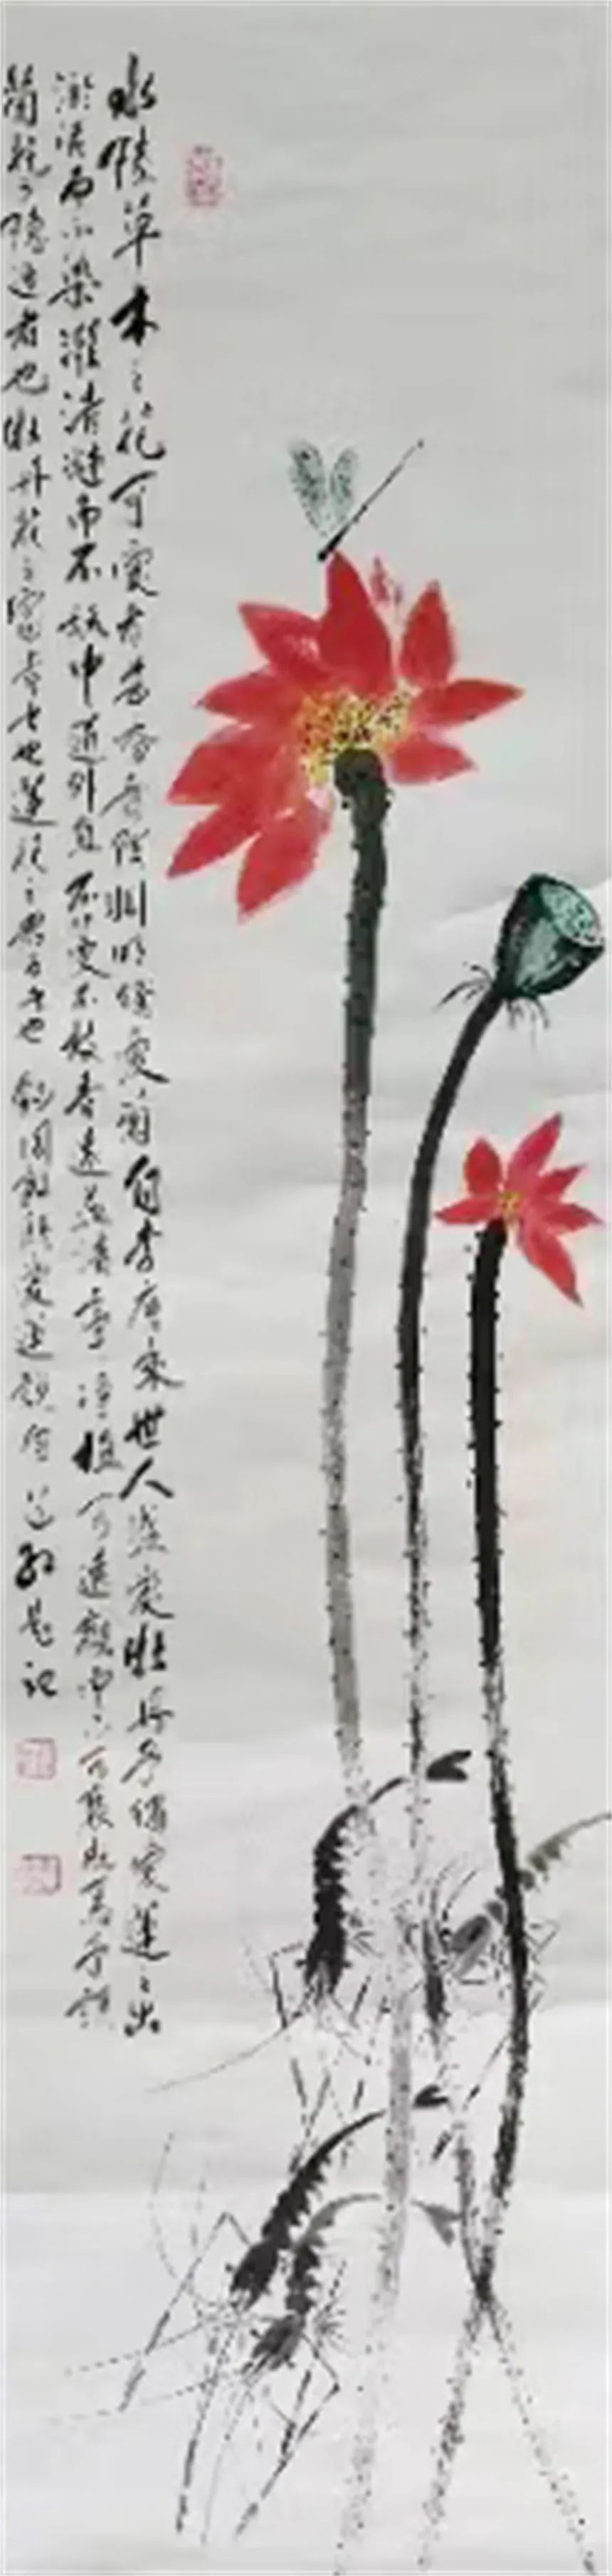 水陸草木之花可愛者甚蕃晉陶淵明獨愛菊自李唐來世人盛愛牡丹予獨愛蓮之出
淤泥而不染濯清漣而不妖中通外直不蔓不枝香遠益清亭亭淨植可遠觀而不可褻玩焉予謂
菊花之隱逸者也牡丹花之富貴者也蓮花之君子者也 錄周敦頤愛蓮說句 題記